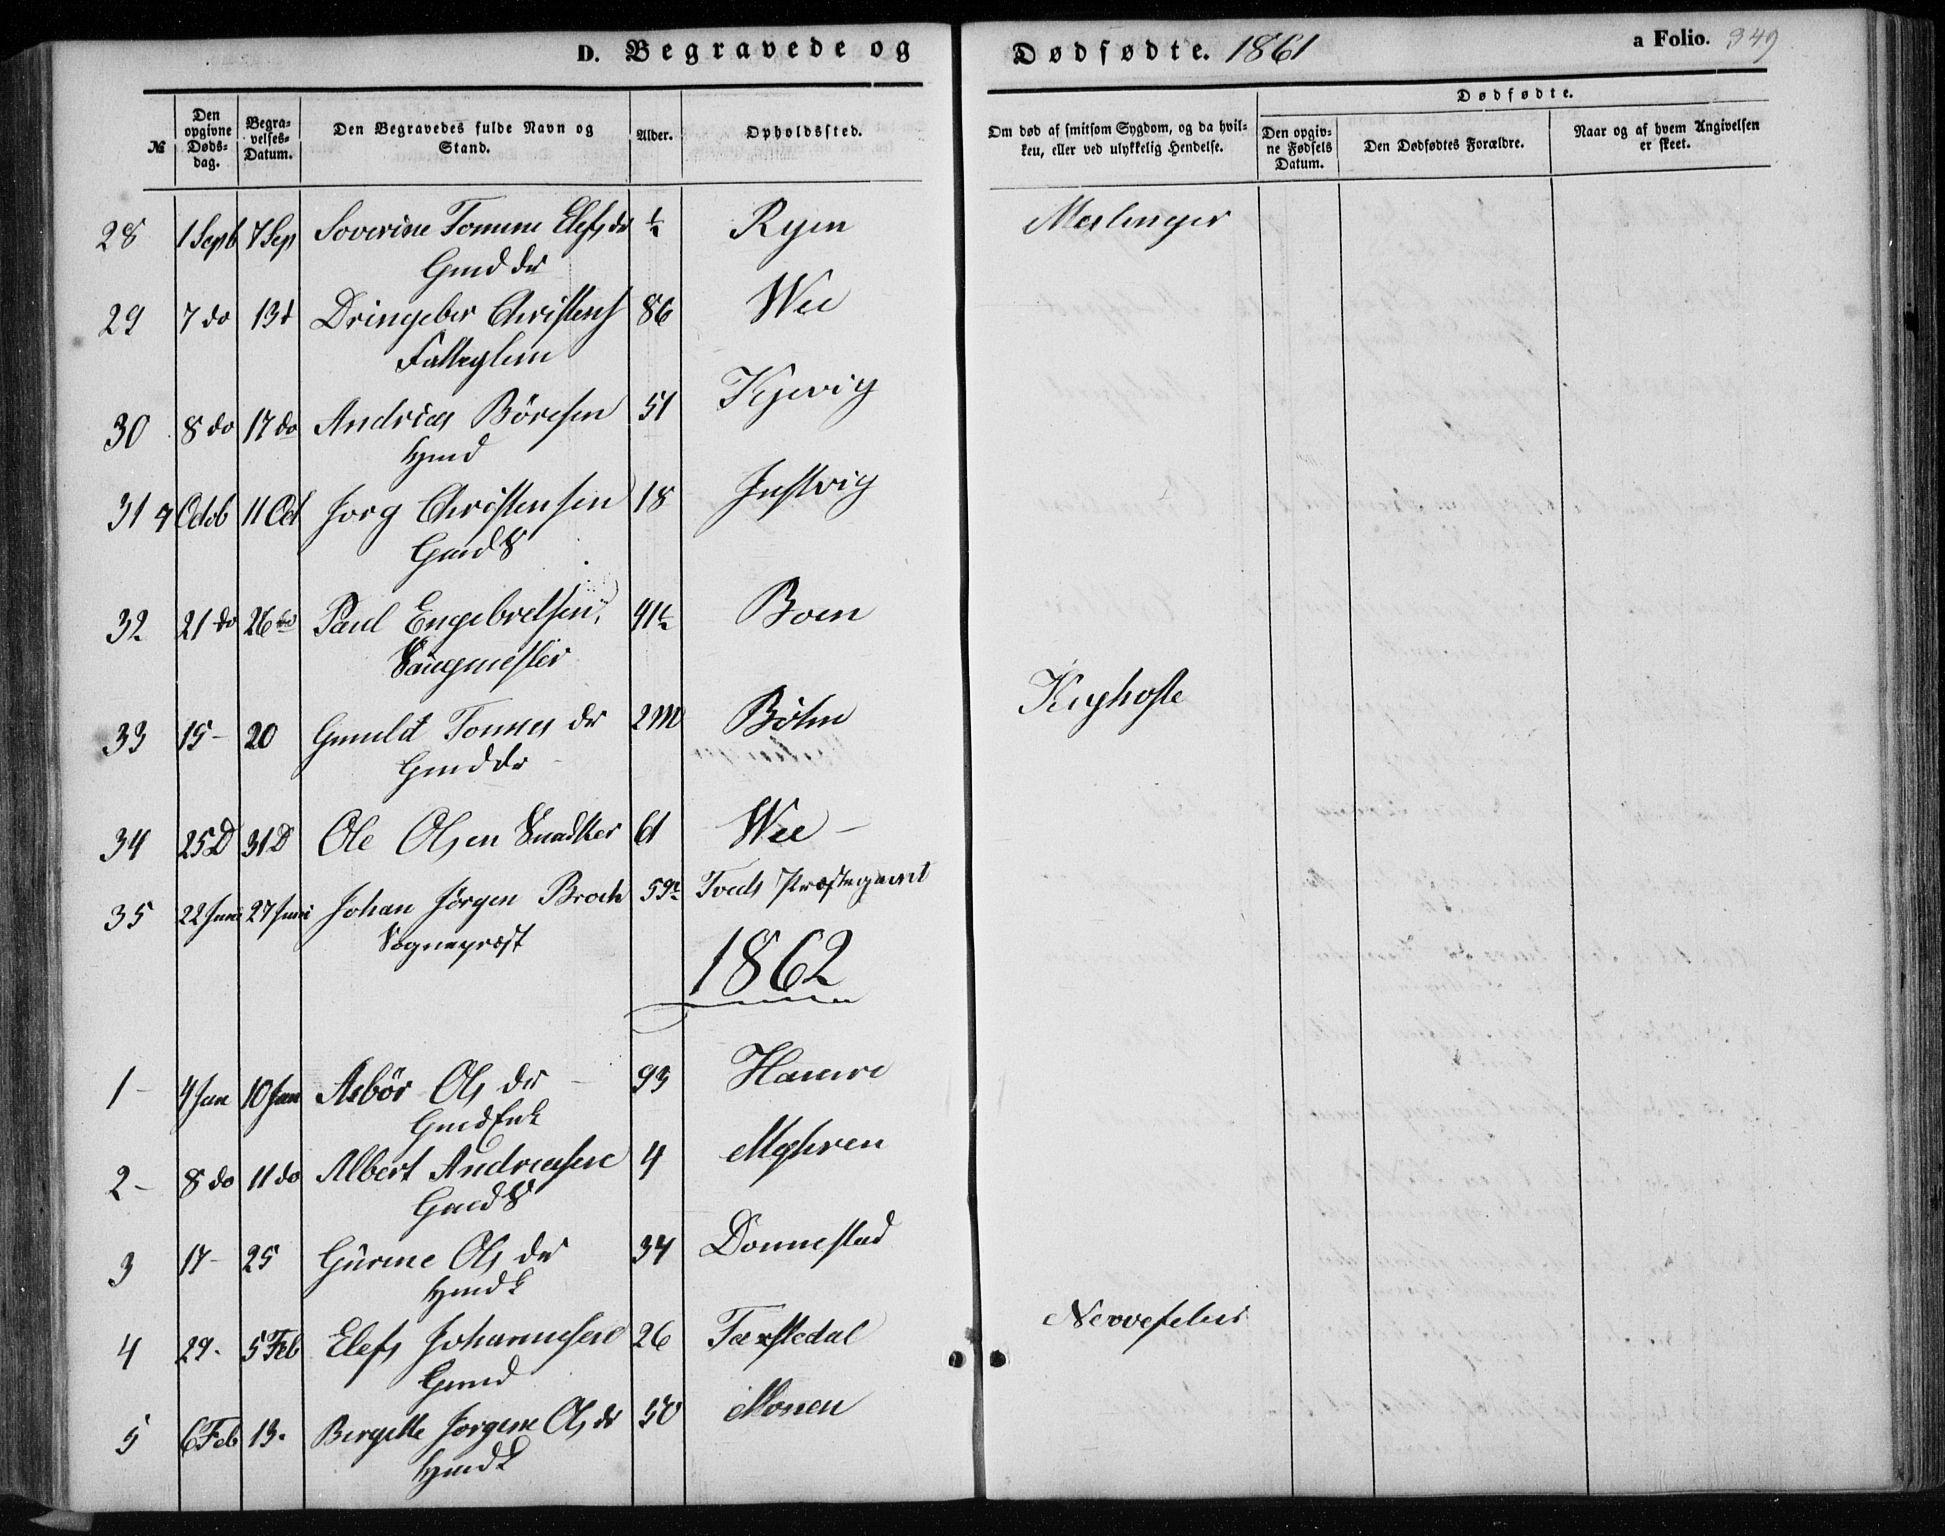 D. Begravede og Dødfødte. 1861 a Folio. 349
№ Den opgivne Døds-dag. Begra-velses-Datum. Den Begravedes fulde Navn og Stand. Alder. Opholdssted. Om død af smitsom Sygdom, og da hvil-ken, eller ved ulykkelig Hendelse. Dødfødte. Den opgiv-ne Fødsels Datum. Den Dødfødtes Forældre. Naar og af hvem Angivelsen er skeet.
28 1 Sept 7 Sep Soverine Tomine Elefsdr ½ Ryen
Gmd dr
29 7 do 13 d Christens 86 Wee
30 8 do 17 do Andreas Böresen 51 Kjevig
Hmd
31 4 Octob 11 Oct Jorg Christensen 18 Justvig
Gmd S
32 21 do 26 do Paul Engebretsen 41½ Boen
Saugmester
33 15 - 20 Gunild Tonnes dr 2 M Böhn Kighoste
Gmd dr
34 25 D 31 D Ole Olsen Snedker 61 Wee -
35 22 Juni 27 Juni Johan Jörgen Broch 59½ Tveds Præstegaard
Sognepræst
1862
1 - 4 Jan 10 Jan Asbör Ols dr - 93 Hamre
Gmd Enk
2 - 8 do 11 do Albert Andreasen 4 Myhren
Gmd S
3 17 - 25 Gurine Ols dr 34 Donnestad
Hmd k
4 29 - 5 Feb Elefs Johannesen 26 Færstedal Nervefeber
Gmd
5 6 Feb 13 - Bergitte Jorgine Ols dr 50 Monen
Hmd k